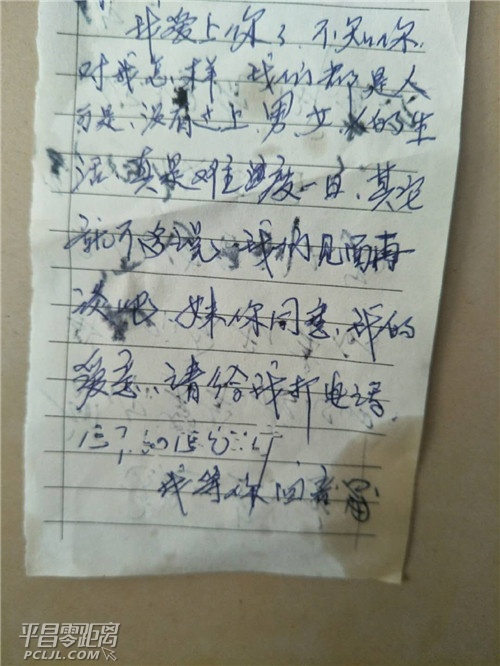 我爱上你了，不知你
对我怎样，我们都是人
可是，没有过上，男女 的生
活，真是难度一日，其它
就不多说，我们见面再
谈吧，妹你同意，我的
爱意，请给我打电话，
我等你回音
平昌零距离
PCLJL.COM